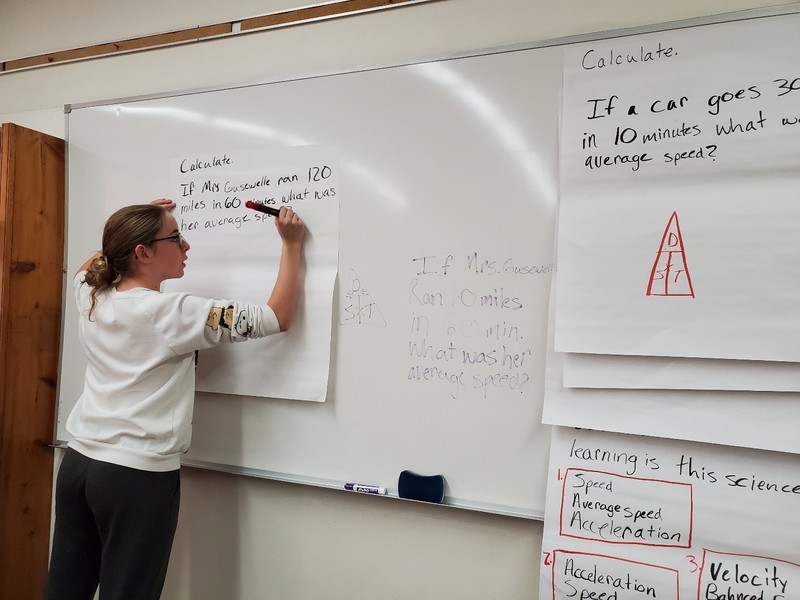 Calculate.
If Mrs Gusewelle ran 120
miles in 60 minutes what was
her average
If Mrs.
Ran miles
in min.
What was her
average speed?
D
S T
Calculate.
If a car goes 30
in 10 minutes what
average speed?
D
S T
learning is this science
1.
Speed
Average speed
Acceleration
2.
Acceleration
Speed
3.
Velocity